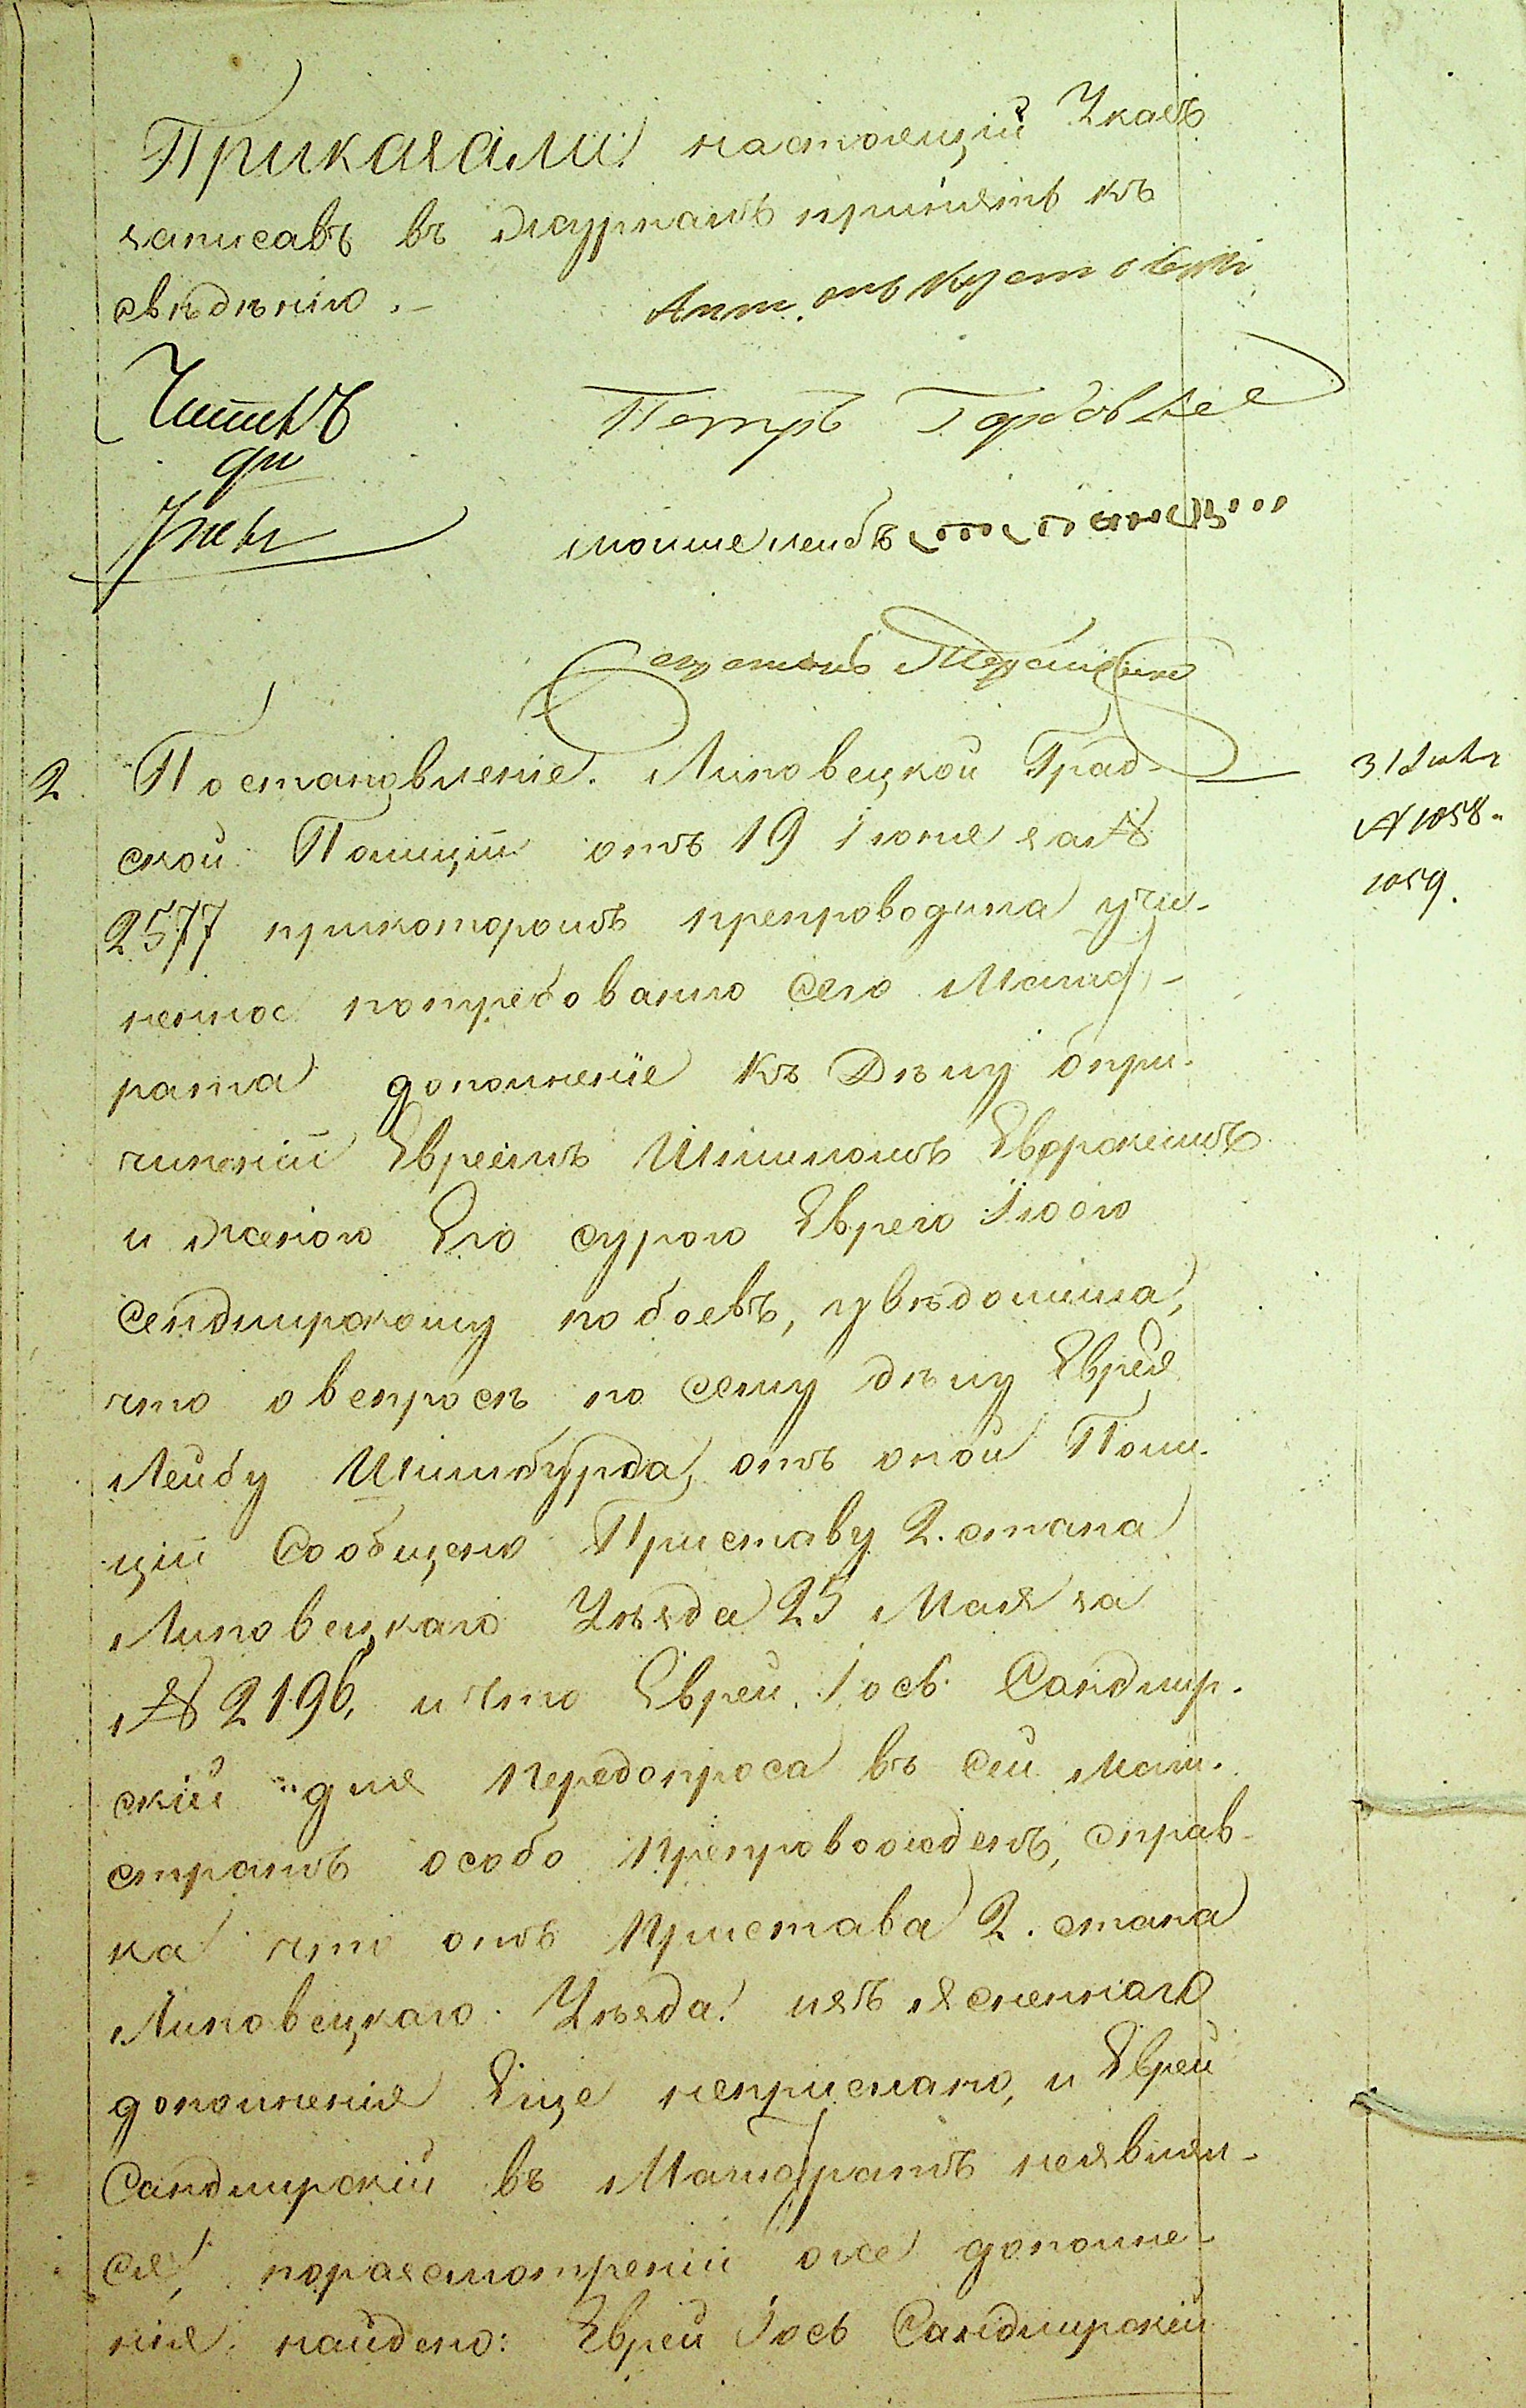 Приказали настоящій Указъ
записавъ въ журналъ принять къ
свѣдѣнію. –
Петръ
мошке лейбъ
2. Постановленіе. Липовецкой Град-
ской Полиціи отъ 19 Іюня за №
2577 прикоторомъ препроводила учи-
ненное потребованію сего Магист-
рата дополненіе къ Дѣлу опри-
чиненіи Евреемъ Шлиомомъ
и женою Его сурою Еврею Іосю
сендмирскому побоевъ, увѣдомила,
что овспросѣ по сему дѣлу Еврея
Лейбу отъ оной Поли-
ціи Сообщено Приставу 2. стана
Липовецкаго Уѣзда 25 Мая за
№ 2196, ичто Еврей Іось Сандмир-
скій для передопроса въ сей Маги-
стратъ особо препровожденъ, справ-
ка что отъ Пристава 2. стана
Липовецкаго Уѣзда изъясненнаго
дополненія Еще неприслано, и Еврей
Сандмирскій въ Магистратъ неявил-
ся, поразсмотреніи же дополне-
нія найдено: Еврей Іось Сандмирскій
№ 1058.
1059.